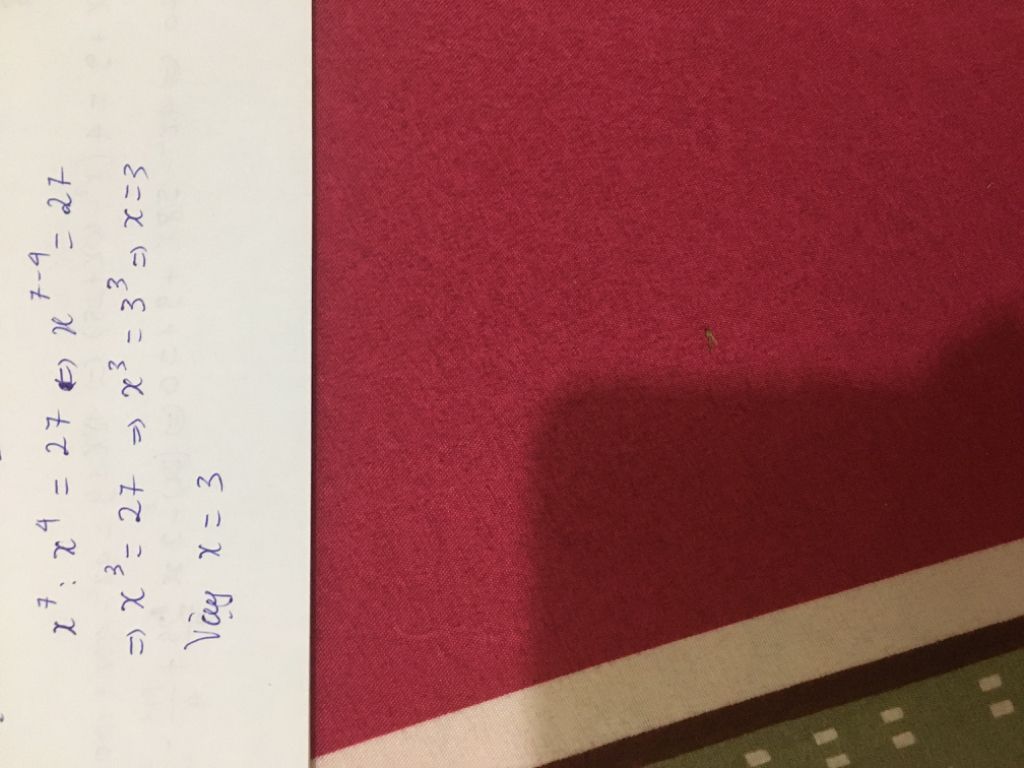 x⁷ : x⁴ = 27 <=> x⁷⁻⁴ = 27
=> x³ = 27 => x³ = 3³ => x = 3
Vậy x = 3